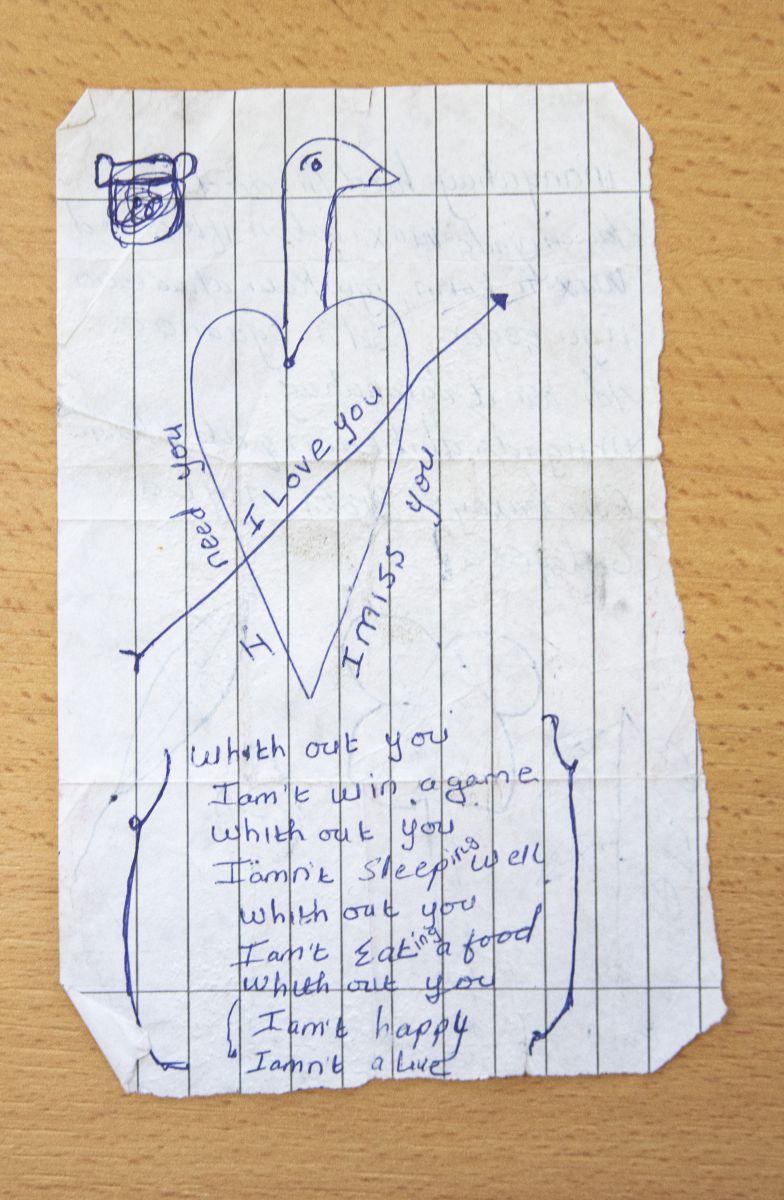 I need you
I Love you
I miss you
Whith out you
Iam't win a game
whith out you
Iamn't sleeping well
whith out you
Iam't Eating a food
Whith out you
Iam't happy
Iamn't alive